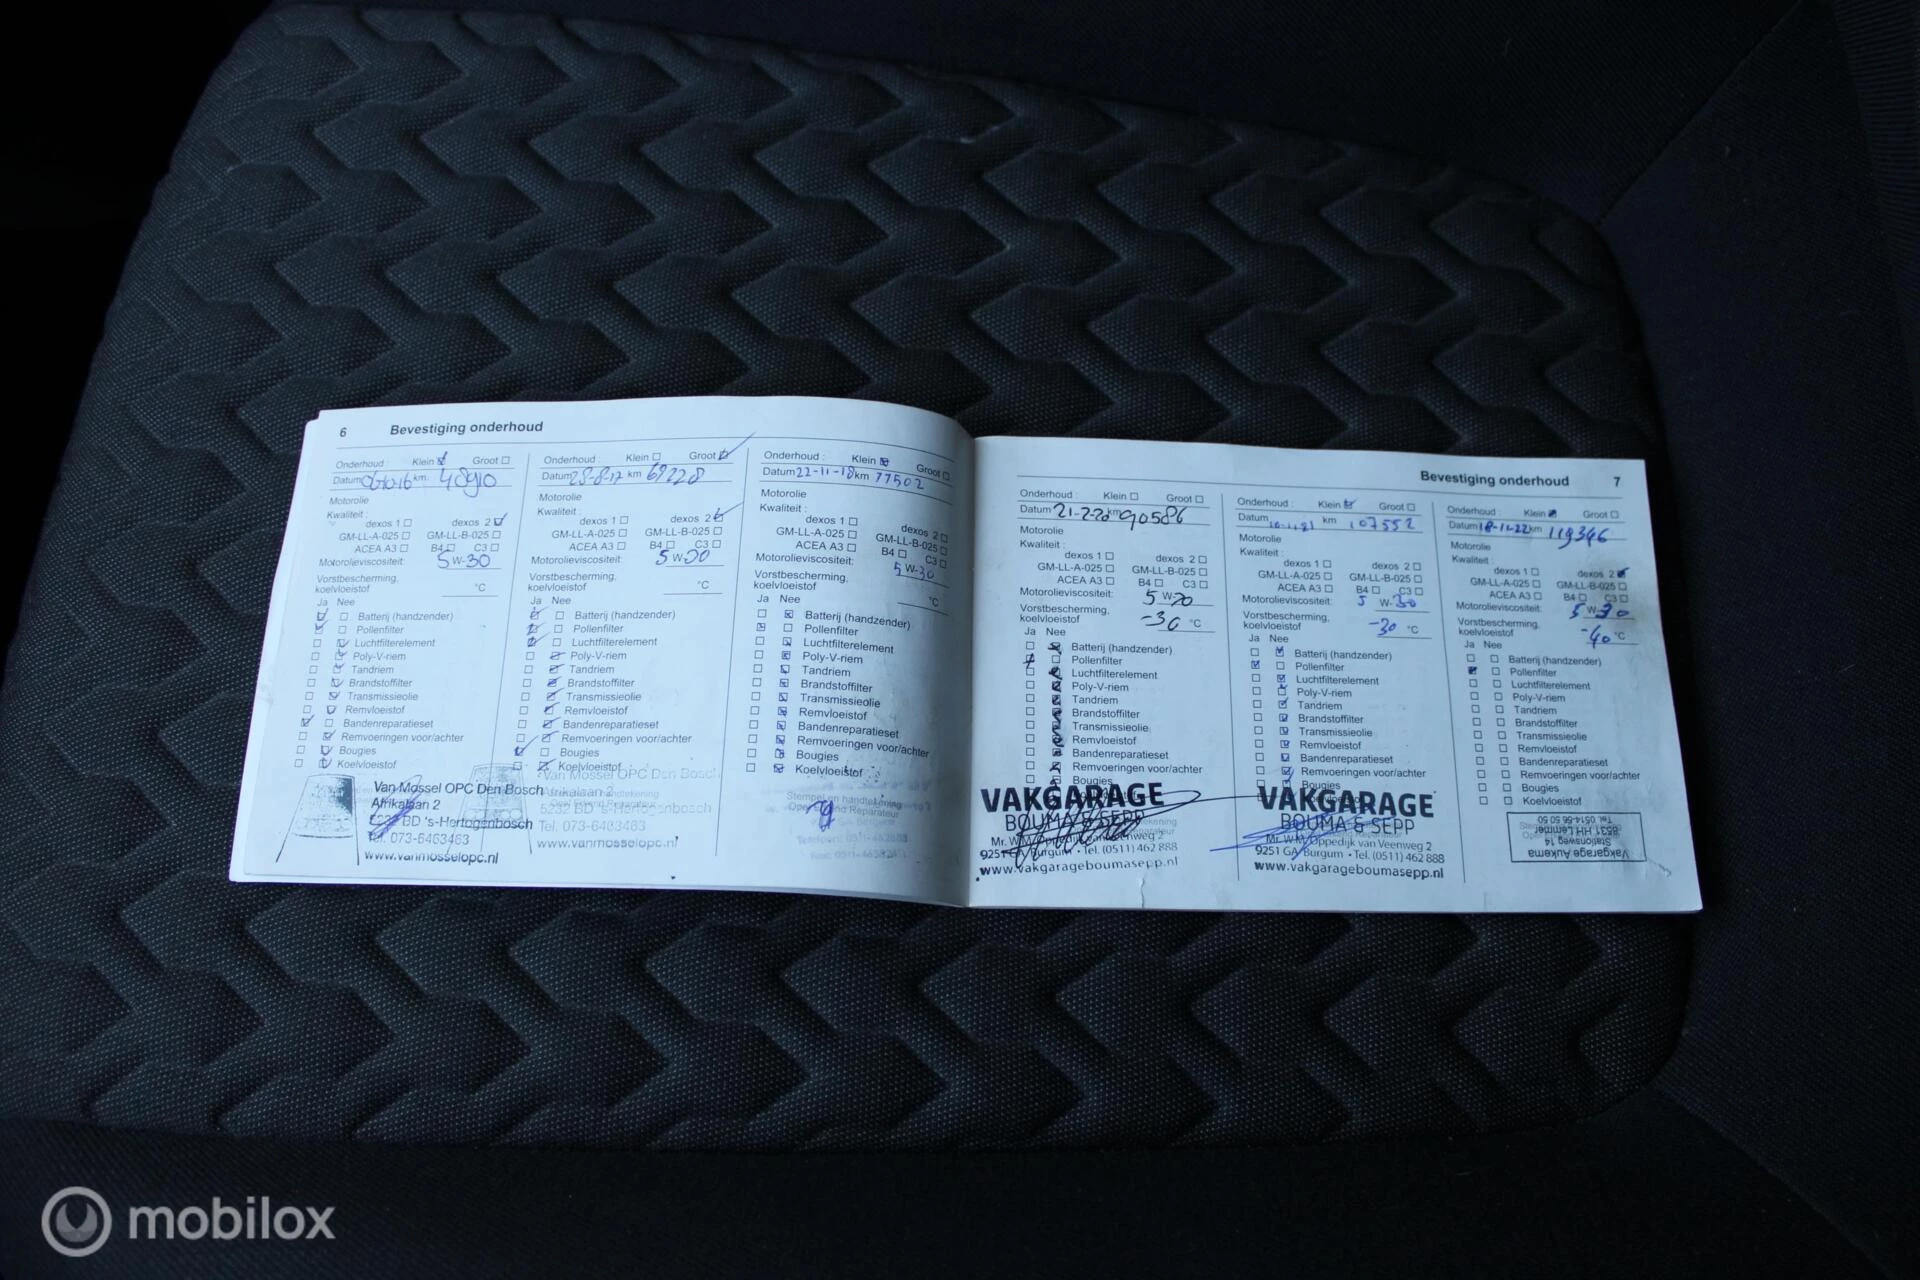 6 Bevestiging onderhoud
Onderhoud : Klein Groot
Datum km 48910
Motorolie
Kwaliteit :
dexos 1 dexos 2
GM-LL-A-025 GM-LL-B-025
ACEA A3 B4 C3
Motorolieviscositeit: 5 W-30
Vorstbescherming,
koelvloeistof °C
Ja Nee
Batterij (handzender)
Pollenfilter
Luchtfilterelement
Poly-V-riem
Tandriem
Brandstoffilter
Transmissieolie
Remvloeistof
Bandenreparatieset
Remvoeringen voor/achter
Bougies
Koelvloeistof
Van Mossel OPC Den Bosch
Afrikalaan 2
5232 BD 's-Hertogenbosch
Tel. 073-6463463
www.vanmosselopc.nl
Onderhoud : Klein Groot
Datum 28-8-17 km 69228
Motorolie
Kwaliteit :
dexos 1 dexos 2
GM-LL-A-025 GM-LL-B-025
ACEA A3 B4 C3
Motorolieviscositeit: 5 W-30
Vorstbescherming,
koelvloeistof °C
Ja Nee
Batterij (handzender)
Pollenfilter
Luchtfilterelement
Poly-V-riem
Tandriem
Brandstoffilter
Transmissieolie
Remvloeistof
Bandenreparatieset
Remvoeringen voor/achter
Bougies
Koelvloeistof
Van Mossel OPC Den Bosch
Afrikalaan 2
5232 BD 's-Hertogenbosch
Tel. 073-6463463
www.vanmosselopc.nl
Onderhoud : Klein Groot
Datum 22-11-18 km 77502
Motorolie
Kwaliteit :
dexos 1 dexos 2
GM-LL-A-025 GM-LL-B-025
ACEA A3 B4 C3
Motorolieviscositeit: 5 W-30
Vorstbescherming,
koelvloeistof °C
Ja Nee
Batterij (handzender)
Pollenfilter
Luchtfilterelement
Poly-V-riem
Tandriem
Brandstoffilter
Transmissieolie
Remvloeistof
Bandenreparatieset
Remvoeringen voor/achter
Bougies
Koelvloeistof
Stempel en handtekening
Opel Erkend Reparateur
Bevestiging onderhoud 7
Onderhoud : Klein Groot
Datum 21-2-20 km 90586
Motorolie
Kwaliteit :
dexos 1 dexos 2
GM-LL-A-025 GM-LL-B-025
ACEA A3 B4 C3
Motorolieviscositeit: 5 W-30
Vorstbescherming,
koelvloeistof -30 °C
Ja Nee
Batterij (handzender)
Pollenfilter
Luchtfilterelement
Poly-V-riem
Tandriem
Brandstoffilter
Transmissieolie
Remvloeistof
Bandenreparatieset
Remvoeringen voor/achter
Bougies
VAKGARAGE
BOUMA & SEPP
Mr. W.M. Oppedijk van Veenweg 2
9251 GA Burgum • Tel. (0511) 462 888
www.vakgarageboumasepp.nl
Onderhoud : Klein Groot
Datum km 107552
Motorolie
Kwaliteit :
dexos 1 dexos 2
GM-LL-A-025 GM-LL-B-025
ACEA A3 B4 C3
Motorolieviscositeit: 5 W-30
Vorstbescherming,
koelvloeistof -30 °C
Ja Nee
Batterij (handzender)
Pollenfilter
Luchtfilterelement
Poly-V-riem
Tandriem
Brandstoffilter
Transmissieolie
Remvloeistof
Bandenreparatieset
Remvoeringen voor/achter
Bougies
VAKGARAGE
BOUMA & SEPP
Mr. W.M. Oppedijk van Veenweg 2
9251 GA Burgum • Tel. (0511) 462 888
www.vakgarageboumasepp.nl
Onderhoud : Klein Groot
Datum 18-11-22 km 119346
Motorolie
Kwaliteit :
dexos 1 dexos 2
GM-LL-A-025 GM-LL-B-025
ACEA A3 B4 C3
Motorolieviscositeit: 5 W-30
Vorstbescherming,
koelvloeistof -40 °C
Ja Nee
Batterij (handzender)
Pollenfilter
Luchtfilterelement
Poly-V-riem
Tandriem
Brandstoffilter
Transmissieolie
Remvloeistof
Bandenreparatieset
Remvoeringen voor/achter
Bougies
Koelvloeistof
Vakgarage Aukema
Stationsweg 14
8531 HH Lemmer
Tel. 0514-56 50 50
mobilox